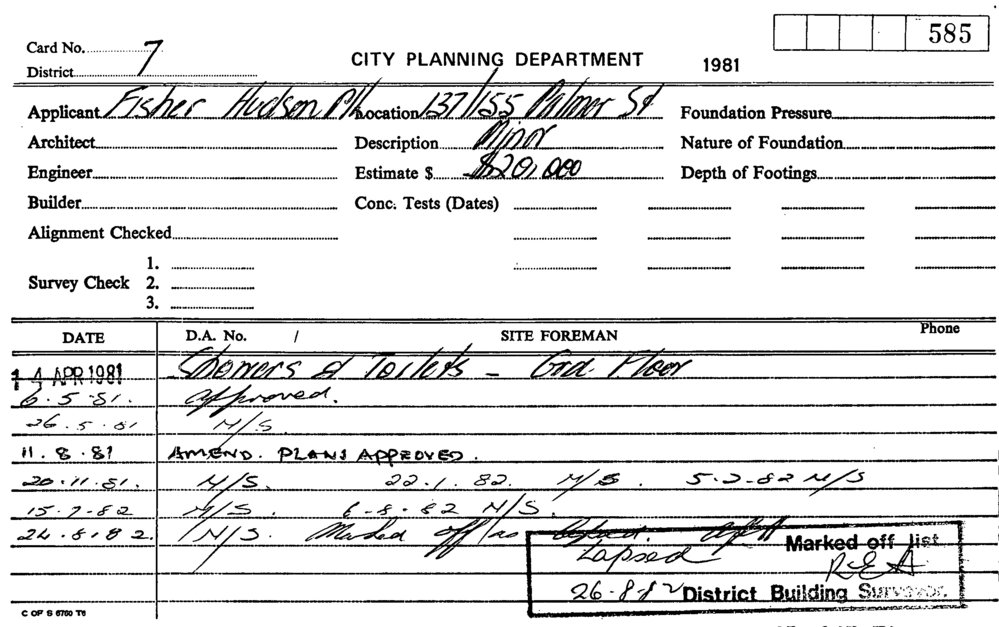 585
Card No. 7
District
CITY PLANNING DEPARTMENT 1981
Applicant Fisher Hudson P/L Location 137/155 Palmer St Foundation Pressure
Architect Description Minor Nature of Foundation
Engineer Estimate $ $20,000 Depth of Footings
Builder Conc. Tests (Dates)
Alignment Checked
1.
Survey Check 2.
3.
DATE D.A. No. / SITE FOREMAN Phone
14 APR 1981 Showers & Toilets - Grd. Floor
6.5.81. approved.
26.5.81 N/S.
11.8.81 AMEND. PLANS APPROVED.
20.11.81. N/S. 22.1.82. N/S. 5-2-82 N/S
15.7-82 N/S. 6-8-82 N/S.
24.8.82. N/S. Marked off as lapsed.
Lapsed Marked off list
REA
26.8.82 District Building Surveyor.
C OF S 6760 T6